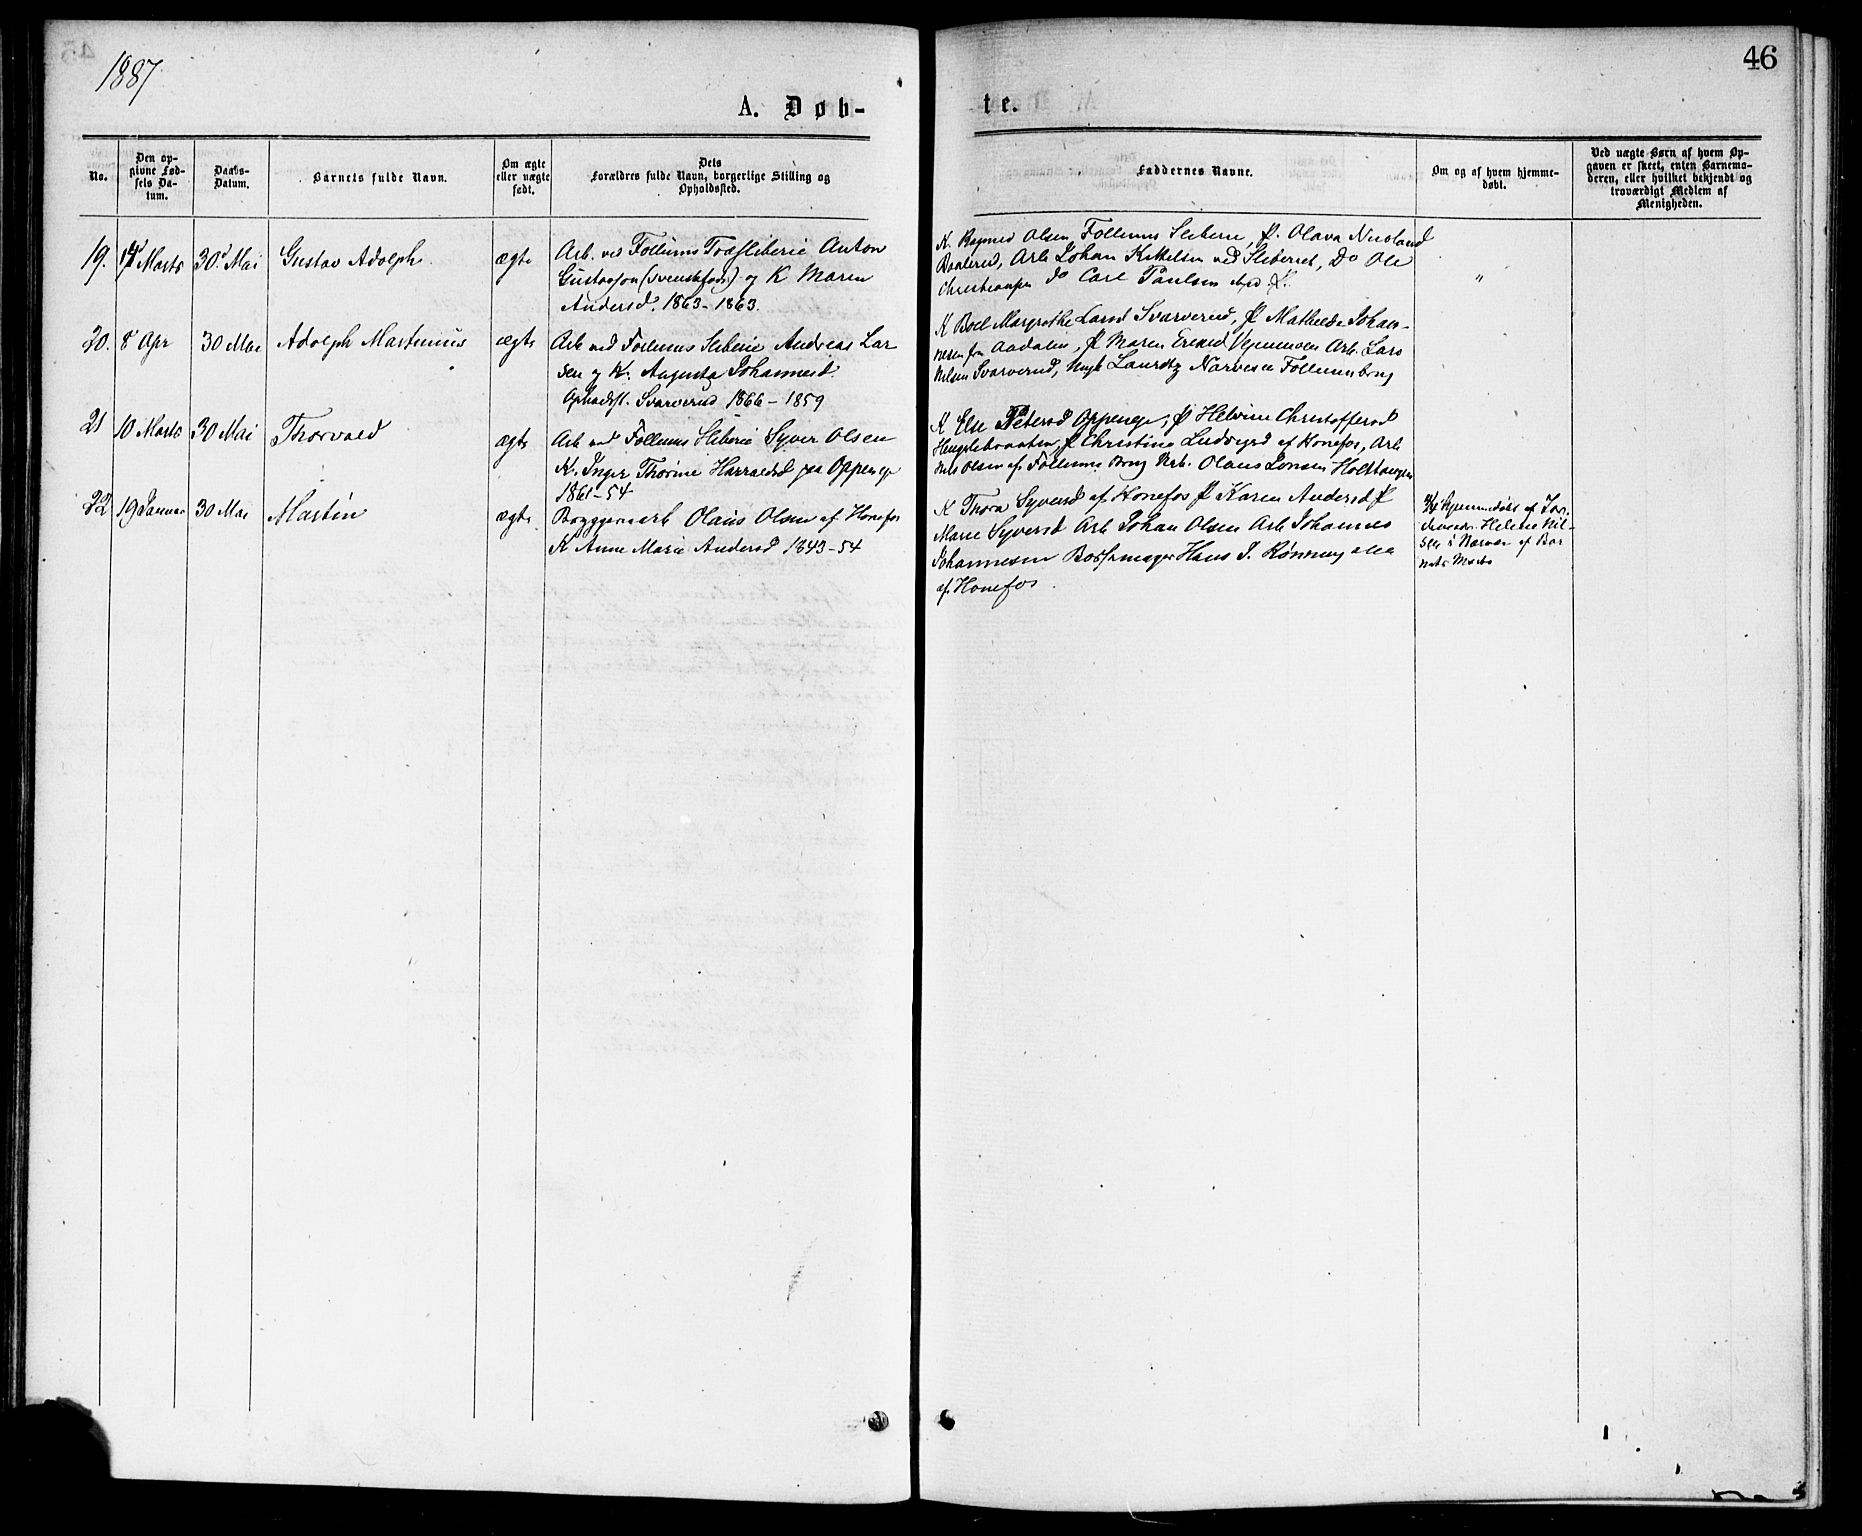 1887
46
A. Døb-
te.
No.
Den op-
givne Fød-
sels Da-
tum.
Daabs-
Datum.
Barnets fulde Navn.
Om ægte
eller uægte
født.
Dets
Forældres fulde Navn, borgerlige Stilling og
Opholdssted.
Faddernes Navne.
Om og af hvem hjemme-
døbt.
Ved uægte Børn af hvem Op-
gaven er skeet, enten Barnemo-
deren, eller hvilket bekjendt og
troværdigt Medlem af
Menigheden.
19. Marts 30. Mai Gustav Adolph. ægte
Arb. ved Follums Træsliberie Anton
Gustavson (Svenskfød) og K Maren
Andersd. 1863-1863.
K. Olsen Follums Sliberie, P. Olava
Arb Johan Kittelsen ved Sliberiet, Do Ole
do Carl Paulsen
"
20. 8 Apr 30 Mai Adolph Martinius ægte
Arb ved Follums Sliberie Andreas Lar
sen og K. Augusta Johannesd.
Opholdst. Svarverud 1866-1859
K Boel Margrethe Larsd Svarverud, P Mathilde Johan-
nesen fra Aadalen, P Maren Eriksd Arb. Lars
Nilsen Svarverud, Laurdtz Narvesen Follumsbrug
"
21 10 Marts 30 Mai Thorvald ægte
Arb ved Follums Sliberie Syver Olsen
K. Inger Thorine Harraldsd paa Oppen
1861-54
K Else Petersd Oppen, P Helvine Christoffersd
P Christine Ludvigsd af Honefos, Arb
Nils Olsen af Follums Brug Arb. Olaus Jonsen
22 19 Januar 30 Mai Martin ægte
Bryggeriarb Olaus Olsen af Honefos
K Anne Marie Andersd 1843-54
K Thora Syversd af Honefos P Karen Andersd P
Marie Syversd Arb Johan Olsen Arb Johannes
Johannesen Hans J. Rønning alle
af Honefos.
Hjemmedøbt af Jor-
demoder Helene Nil-
sen i Nærvær af Bar
nets Moder